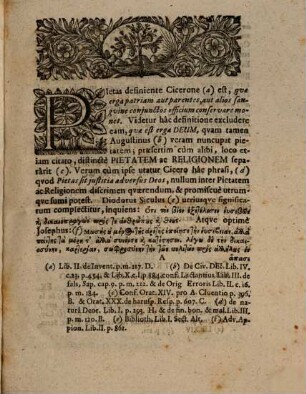 PIetas definiente Cicerone (a) est, qua
erga patriam aut parentes, aut alios san-
guine conjunctos officium conservare mo-
net. Videtur hâc definitione excludere
eam, quæ est erga DEUM, quam tamen
Augustinus (b) veram nuncupat pie-
tatem; præsertim cùm alibi, loco et-
iam citato, distinctè PIETATEM ac RELIGIONEM sepa-
rârit (c). Verum cùm ipse utatur Cicero hâc phrasi, (d)
qvod Pietas sit justitia adversus Deos, nullum inter Pietatem
ac Religionem discrimen qværendum, & promiscuè utrum-
que sumi potest. Diodorus Siculus (e) utriusqve significa-
tum complectitur, inquiens:
Atqve optimè
Josephus: (f)
A
(a) Lib. II. de Invent. p.m. 117. D. (b) De Civ. DEI. Lib. IV.
c.23. p. 434. & Lib. X. c.1. p. 584. conf. Lactantius Lib. III. de
fals. Sap. cap. 9. p. m. 222. & de Orig. Erroris Lib. II. c. 16.
p. m. 184. (c) Conf. Orat. XIV. pro A. Cluentio p. 396.
B. & Orat. XXX. de harusp. Resp. p. 607. C. (d) de na-
turâ Deor. Lib. I. p. 195. H. & de fin. bon. & mal. Lib. III.
p. m. 120. B. (e) Biblioth. Lib. I. Sect. Alt. (f) Adv. Ap-
pion. Lib. II. p. 861.